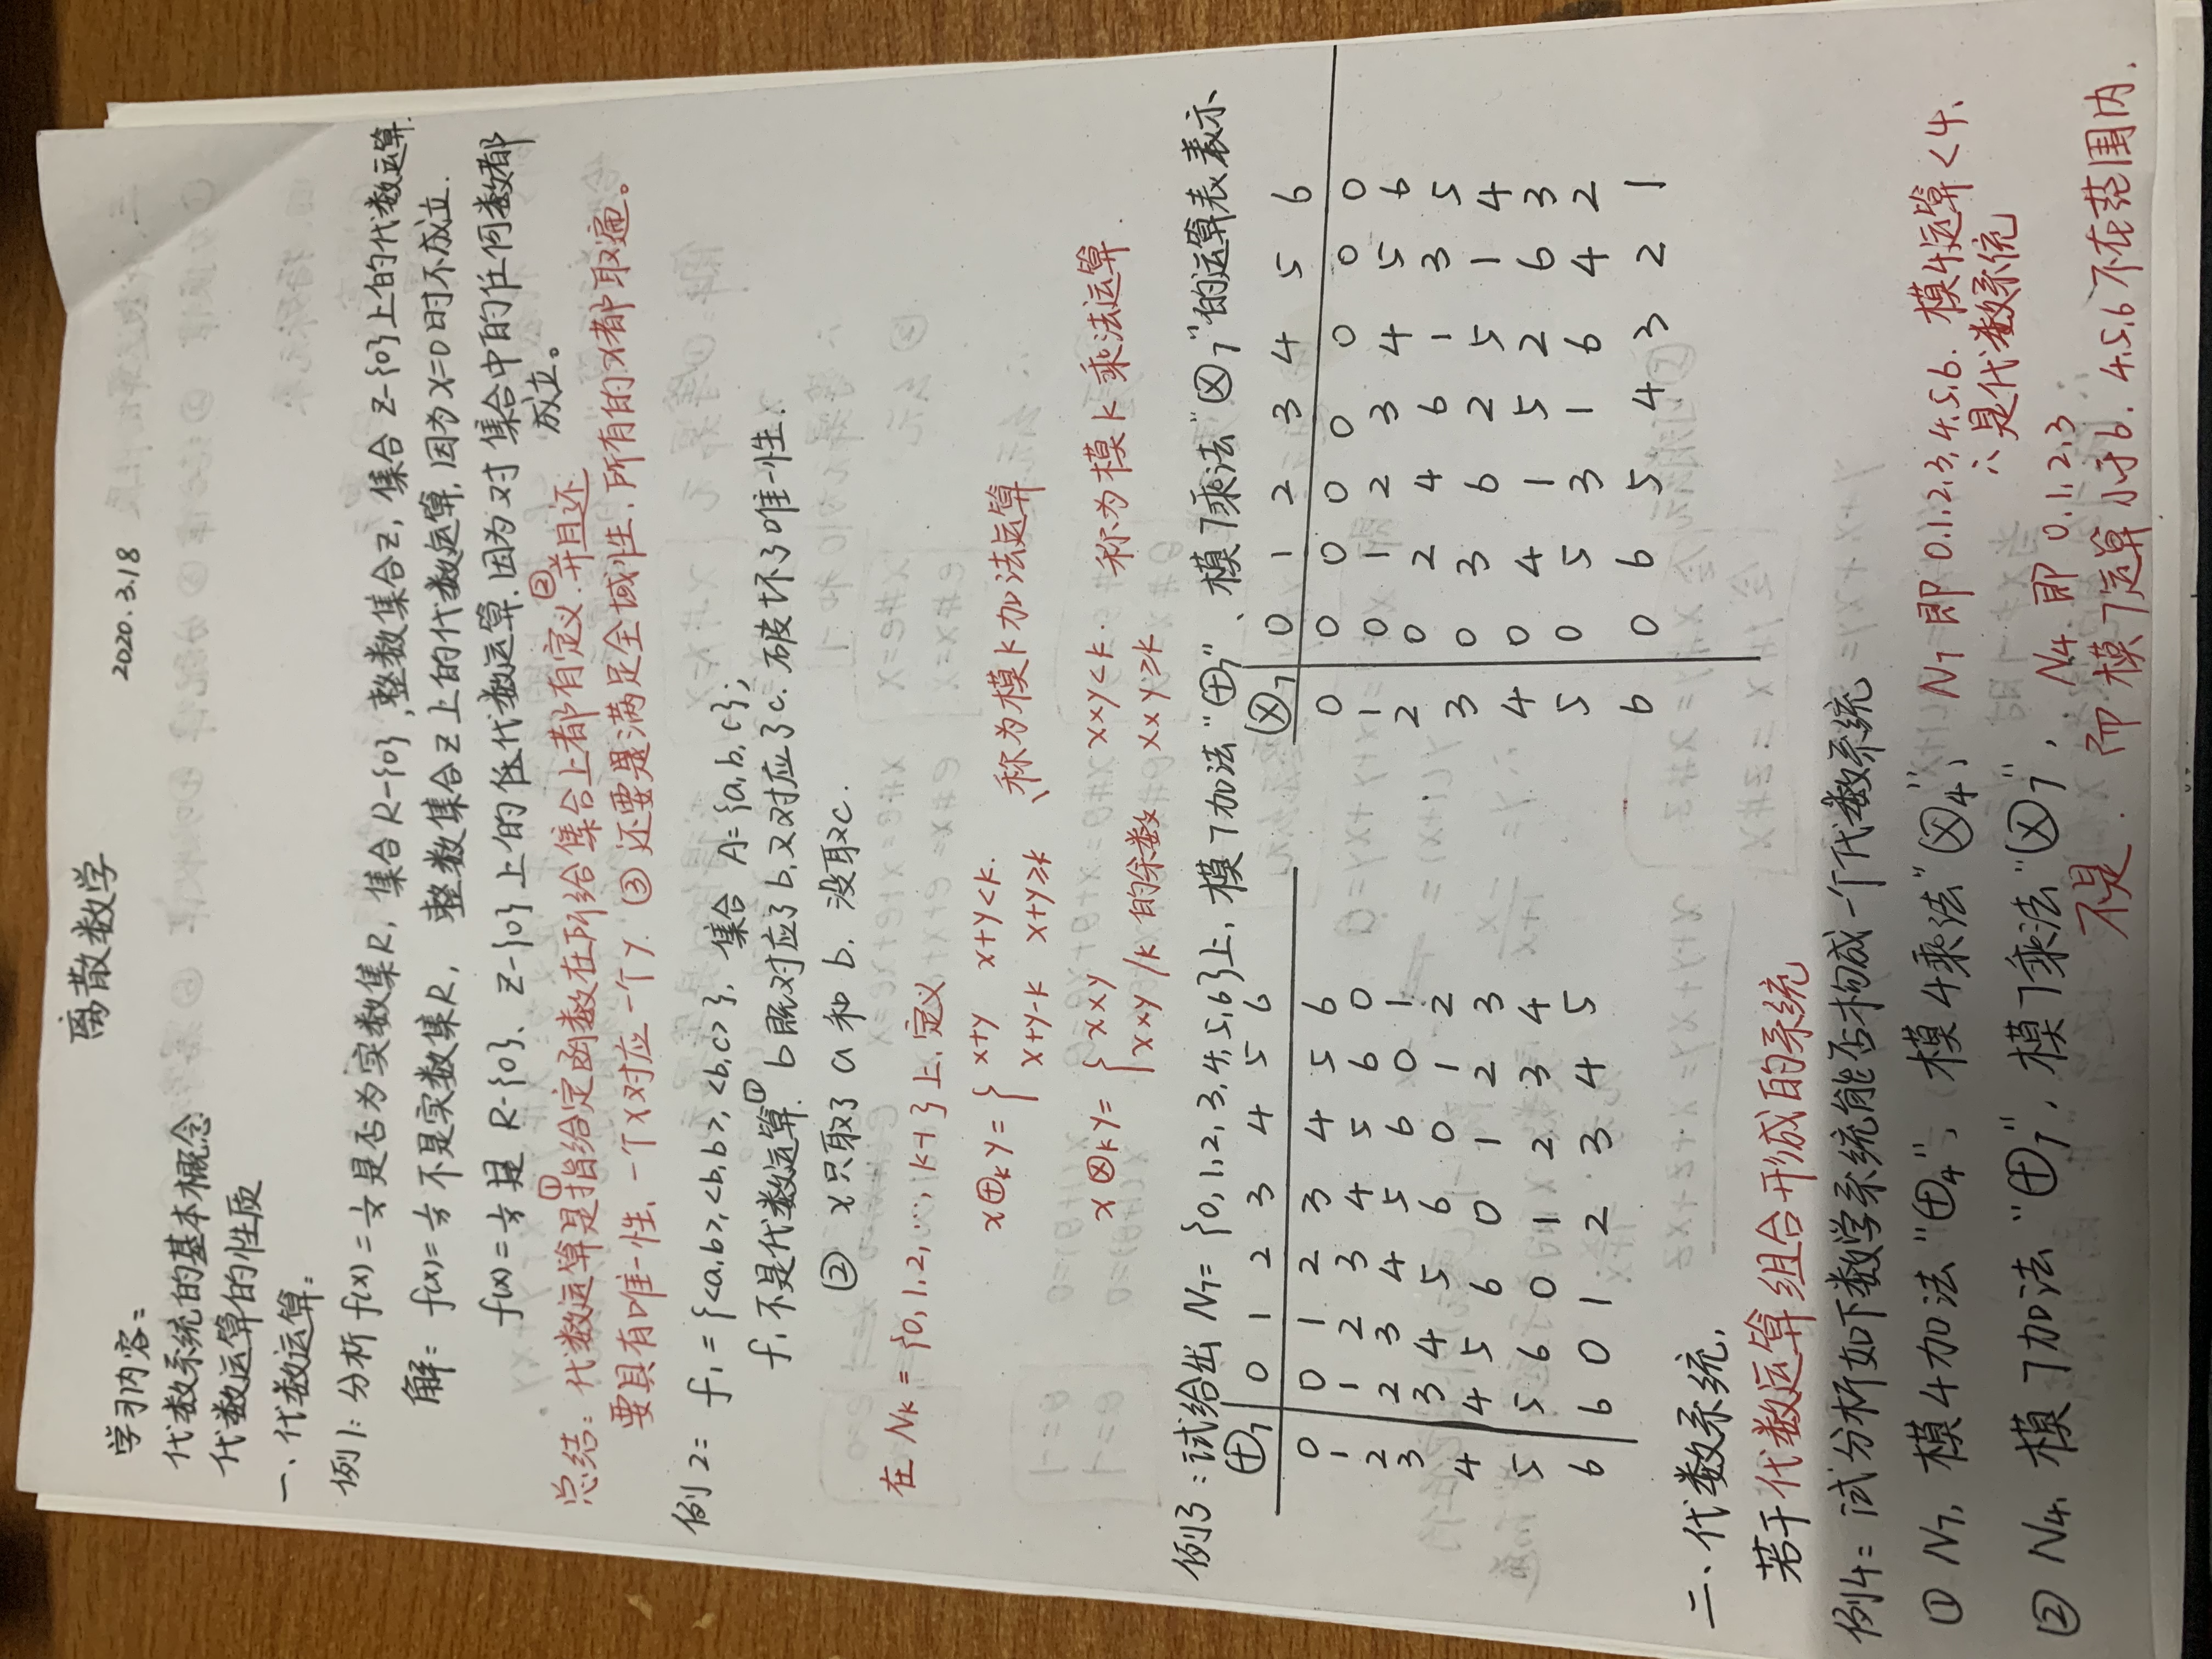 离散数学
2020.3.18
学习内容:
代数系统的基本概念
代数运算的性质
一、代数运算:
例1: 分析 f(x)=1/x 是否为实数集R, 集合R-{0}, 整数集合Z, 集合Z-{0}上的代数运算.
解: f(x)=1/x 不是实数集R, 整数集合Z上的代数运算, 因为x=0时不成立.
f(x)=1/x 是 R-{0}、Z-{0}上的代数运算. 因为对集合中的任何数都
成立。
总结: 代数运算是①指给定函数在所给集合上都有定义.②并且还
要具有唯一性、一个x对应一个y. ③还要是满足全域性. 所有的x都取遍。
例2: f₁={<a,b>,<b,b>,<b,c>}, 集合A={a,b,c};
f₁不是代数运算.①b既对应了b,又对应了c. 破坏了唯一性.
② x只取了a和b, 没取c.
在Nk={0,1,2,…,k-1}上,定义
x⊕ky={ x+y x+y<k.
x+y-k x+y≥k
、称为模k加法运算
x⊗ky={ x×y x×y<k.
x×y/k的余数 x×y≥k
称为模k乘法运算.
例3: 试给出N₇={0,1,2,3,4,5,6}上, 模7加法"⊕₇"、模7乘法"⊗₇"的运算表表示、
⊕₇ 0 1 2 3 4 5 6
0 0 1 2 3 4 5 6
1 1 2 3 4 5 6 0
2 2 3 4 5 6 0 1
3 3 4 5 6 0 1 2
4 4 5 6 0 1 2 3
5 5 6 0 1 2 3 4
6 6 0 1 2 3 4 5
⊗₇ 0 1 2 3 4 5 6
0 0 0 0 0 0 0 0
1 0 1 2 3 4 5 6
2 0 2 4 6 1 3 5
3 0 3 6 2 5 1 4
4 0 4 1 5 2 6 3
5 0 5 3 1 6 4 2
6 0 6 5 4 3 2 1
二、代数系统.
若干代数运算组合形成的系统
例4: 试分析如下数学系统能否构成一个代数系统
① N₇, 模4加法"⊕₄", 模4乘法"⊗₄", N₇即0.1.2.3.4.5.6. 模4运算<4.
∴是代数系统
② N₄, 模7加法"⊕₇", 模7乘法"⊗₇", N₄.即 0.1.2.3
不是. 而模7运算小于6. 4.5.6不在范围内.